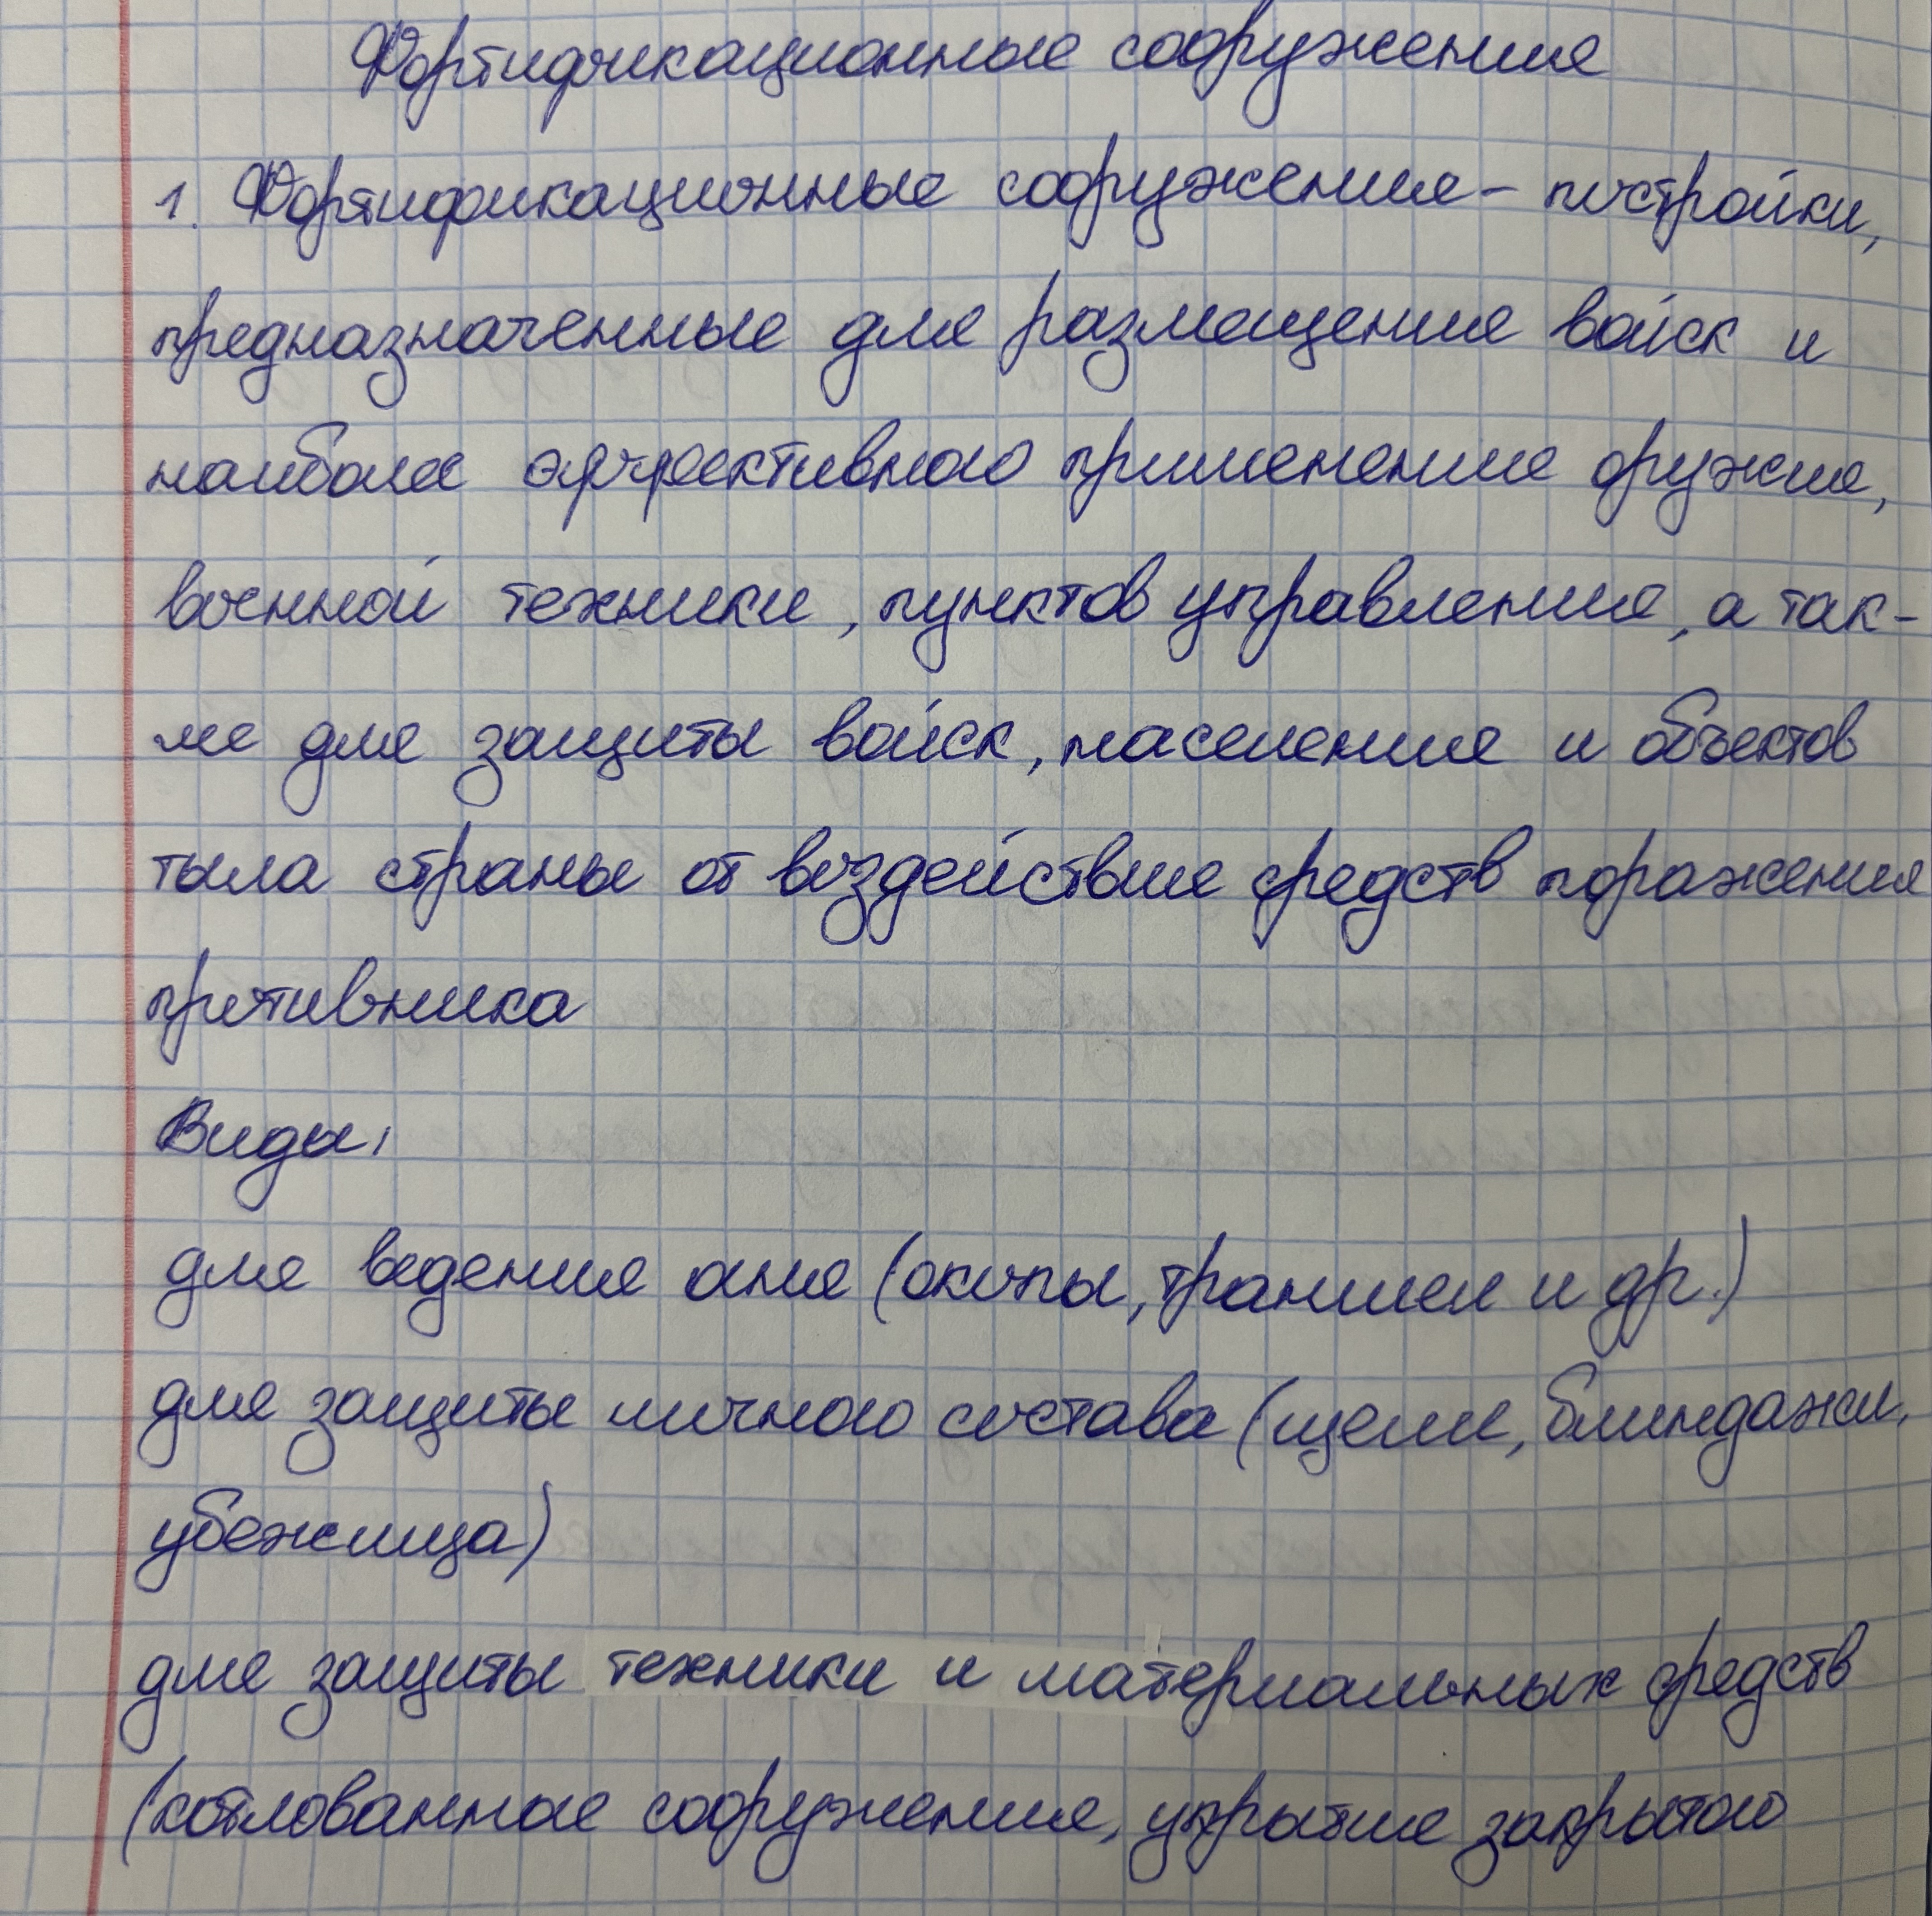 Фортификационные сооружения
1. Фортификационные сооружения – постройки,
предназначенные для размещения войск и
наиболее эффективного применения оружия,
военной техники, пунктов управления, а так-
же для защиты войск, населения и объектов
тыла страны от воздействия средств поражения
противника
Виды:
для ведения огня (окопы, траншеи и др.)
для защиты личного состава (щели, блиндажи,
убежища)
для защиты техники и материальных средств
(котлованное сооружения, укрытия закрытого